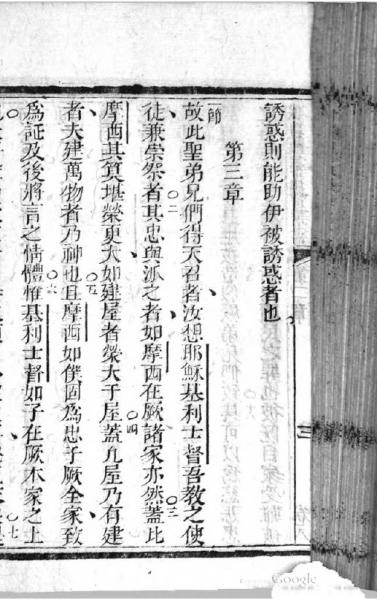 誘惑則能助伊被誘惑者也
第三章
一節
故此聖弟兄們得天召者汝想耶穌基利士督吾教之使
徒兼崇祭者○二其忠與派之者如摩西在厥諸家亦然○三蓋此
摩西其算堪榮更大如建屋者榮大于屋○四蓋凡屋乃有建
者夫建萬物者乃神也○五且摩西如僕固為忠于厥全家致
為証及後將言之情體○六惟基利士督如子在厥本家之上
三
○七
Google